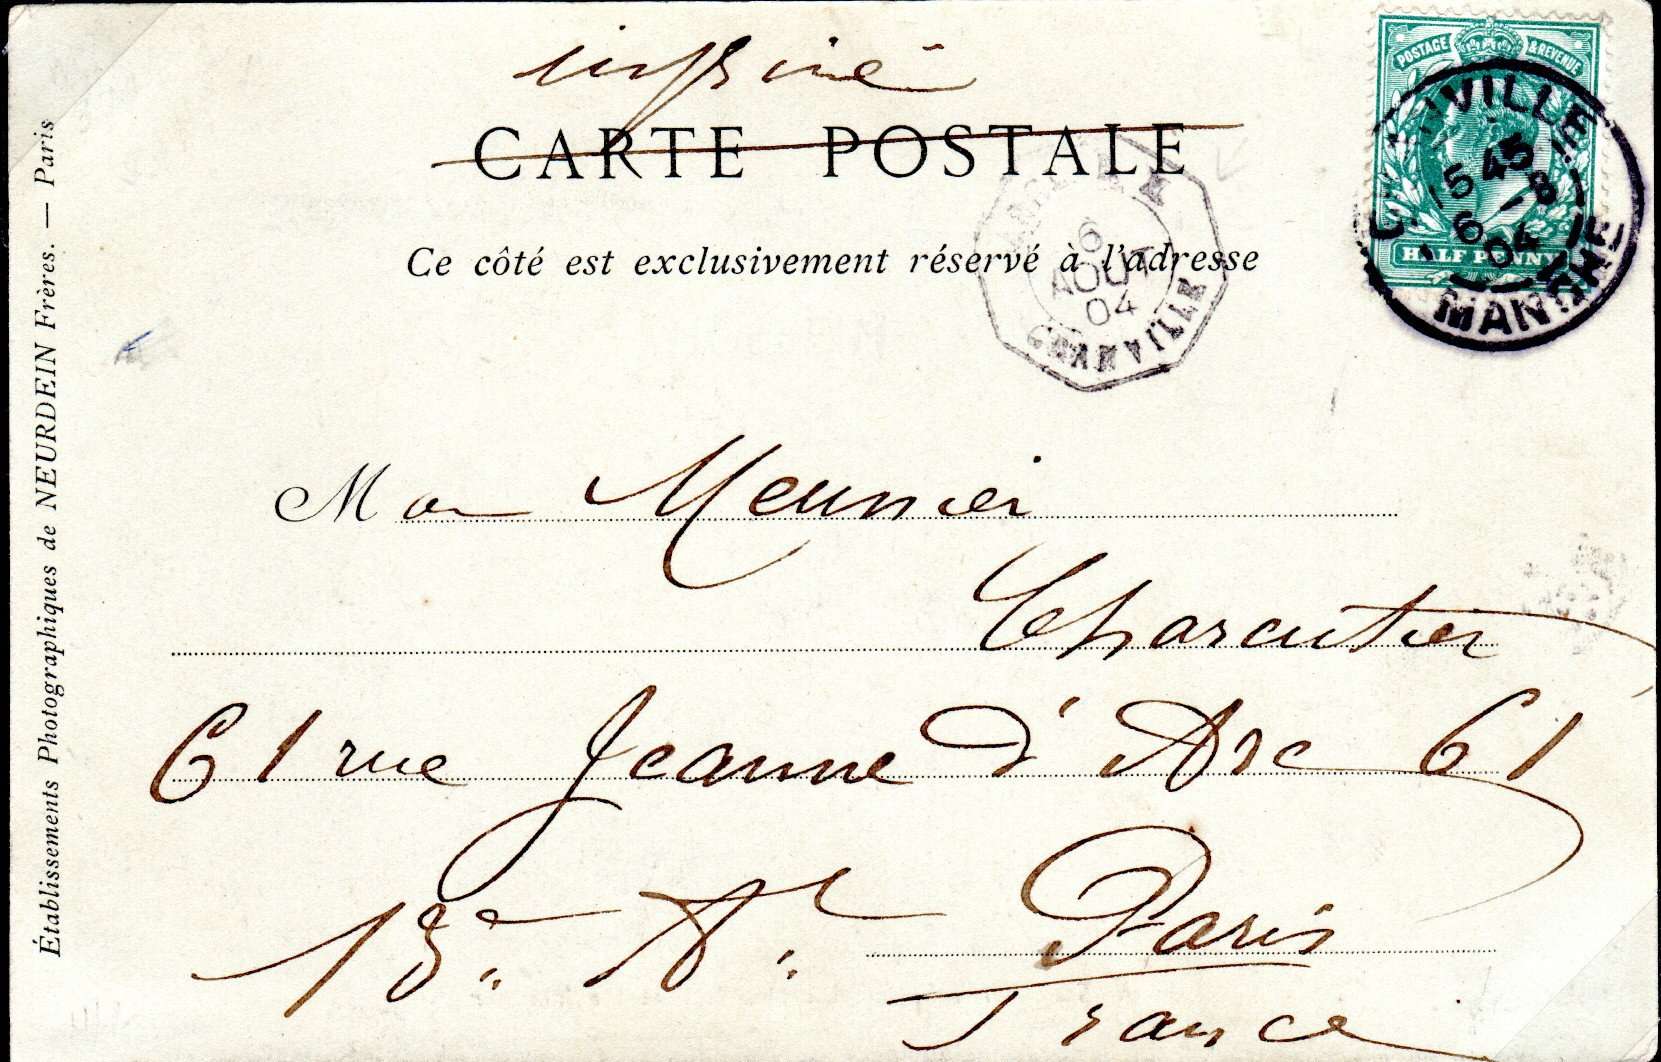 imprimé
CARTE POSTALE
Ce côté est exclusivement réservé à l'adresse
POSTAGE & REVENUE
HALF PENNY
15 45
6 - 8
04
MANCHE
6
AOUT
04
GRANVILLE
Mon Meunier
Charcutier
61 rue Jeanne d'Arc 61
13e Ar. Paris
France
Établissements Photographiques de NEURDEIN Frères. — Paris